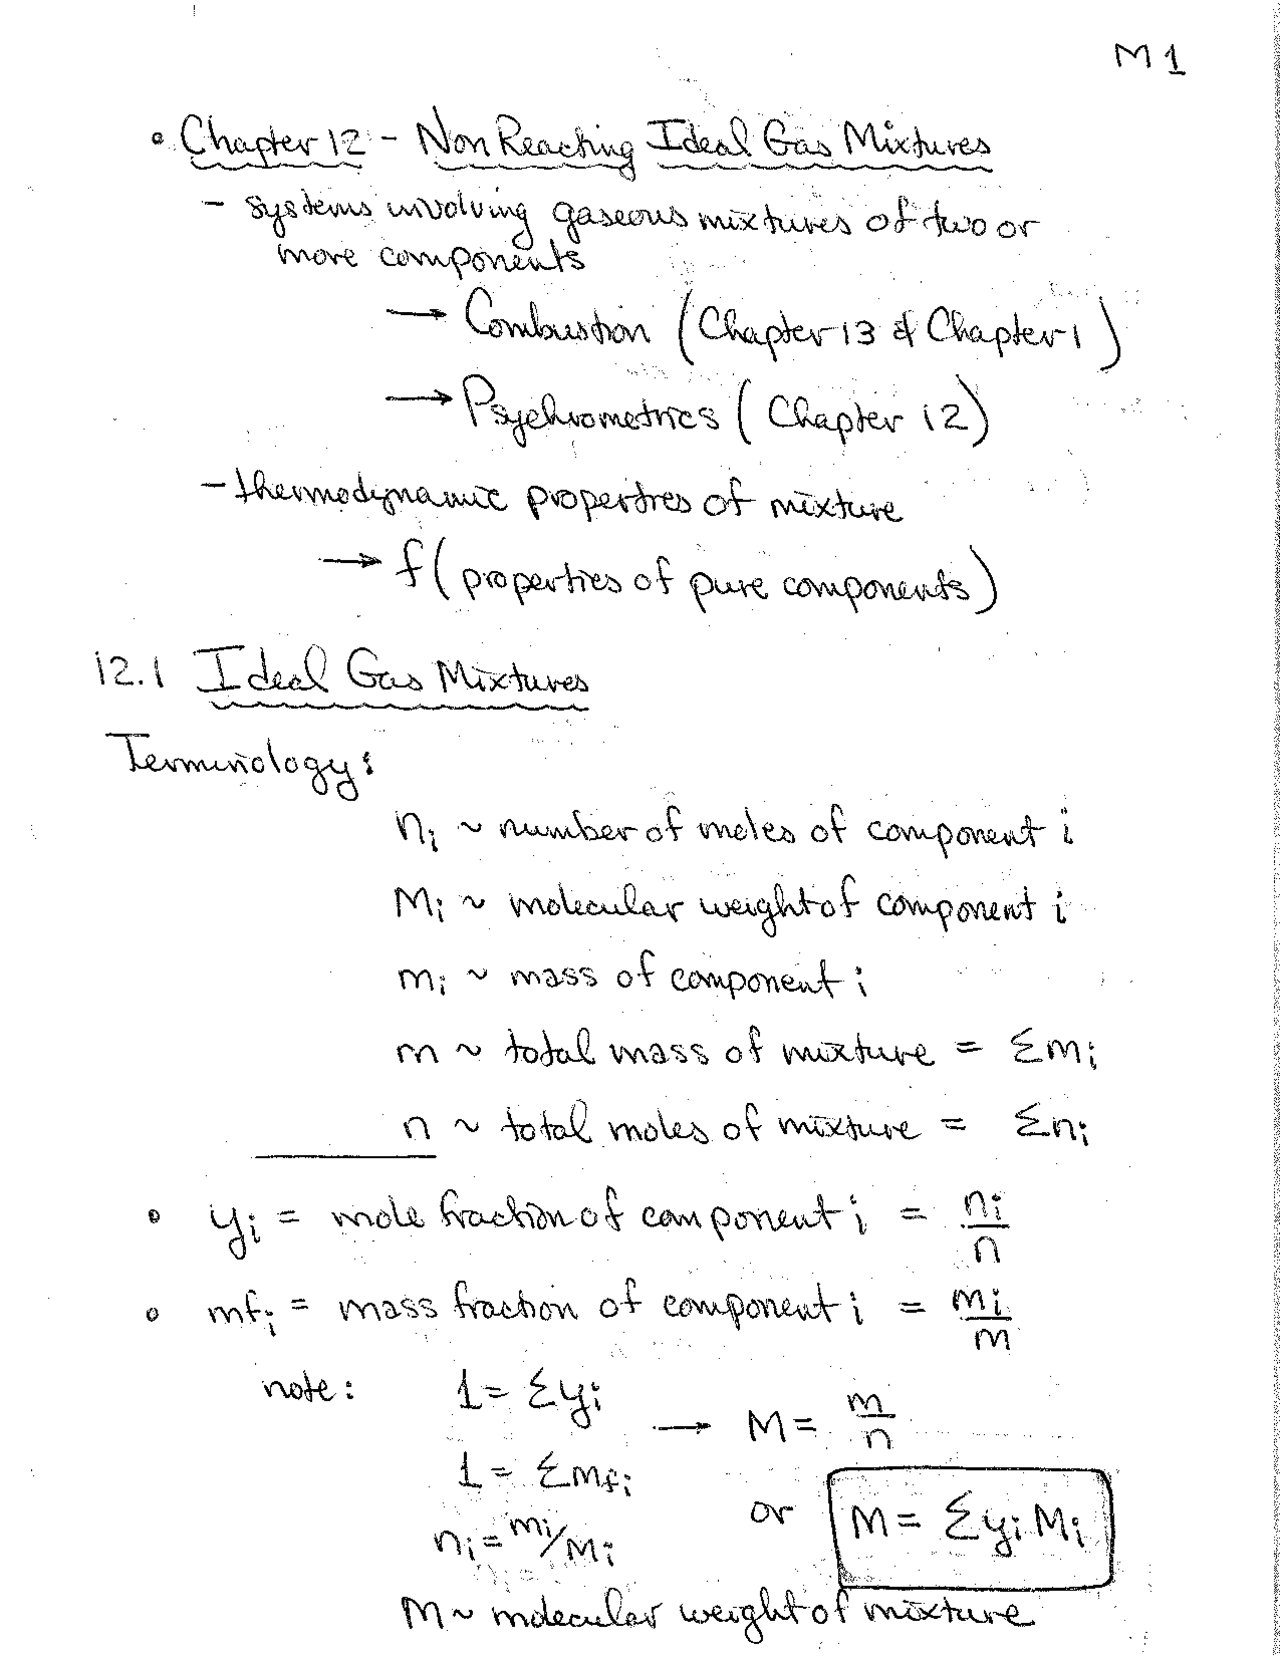 M1
• Chapter 12 - Non Reacting Ideal Gas Mixtures
- systems involving gaseous mixtures of two or
more components
→ Combustion (Chapter 13 & Chapter 1)
→ Psychrometrics (Chapter 12)
- thermodynamic properties of mixture
→ f(properties of pure components)
12.1 Ideal Gas Mixtures
Terminology:
nᵢ ~ number of moles of component i
Mᵢ ~ molecular weight of component i
mᵢ ~ mass of component i
m ~ total mass of mixture = Σmᵢ
n ~ total moles of mixture = Σnᵢ
• yᵢ = mole fraction of component i = nᵢ/n
• mfᵢ = mass fraction of component i = mᵢ/m
note: 1 = Σyᵢ → M = m/n
1 = Σmfᵢ
or M = ΣyᵢMᵢ
nᵢ = mᵢ/Mᵢ
M ~ molecular weight of mixture